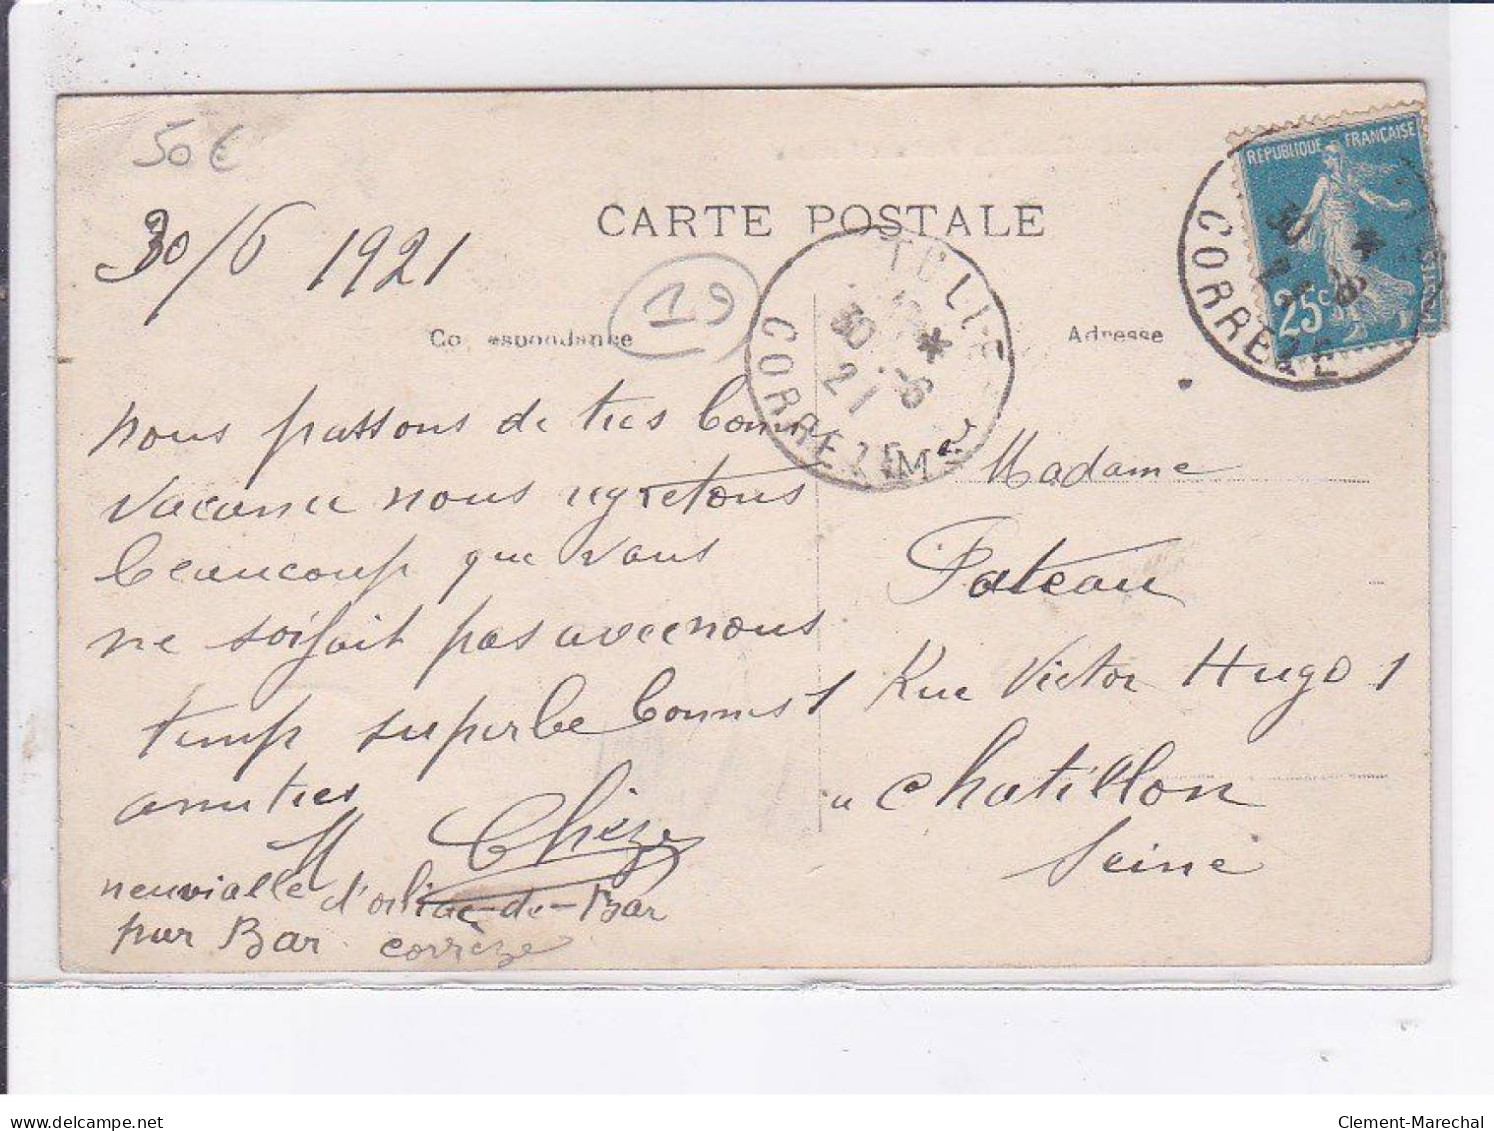 50€
30/6 1921
CARTE POSTALE
19
TULLE
30 -6
21
CORREZE
RÉPUBLIQUE FRANÇAISE
25c
POSTES
30 -6
21
CORREZE
Co espondance
Adresse
nous passons de tres bonn
vacance nous regretons
beaucoup que vous
ne soifait pas avec nous
temp superbe bonnes
amities
M Chèze
neuvialle d'orliac-de-Bar
par Bar corrèze
M
Madame
Pateau
Rue Victor Hugo 1
a chatillon
Seine
Clement-Marechal
delcampe.net